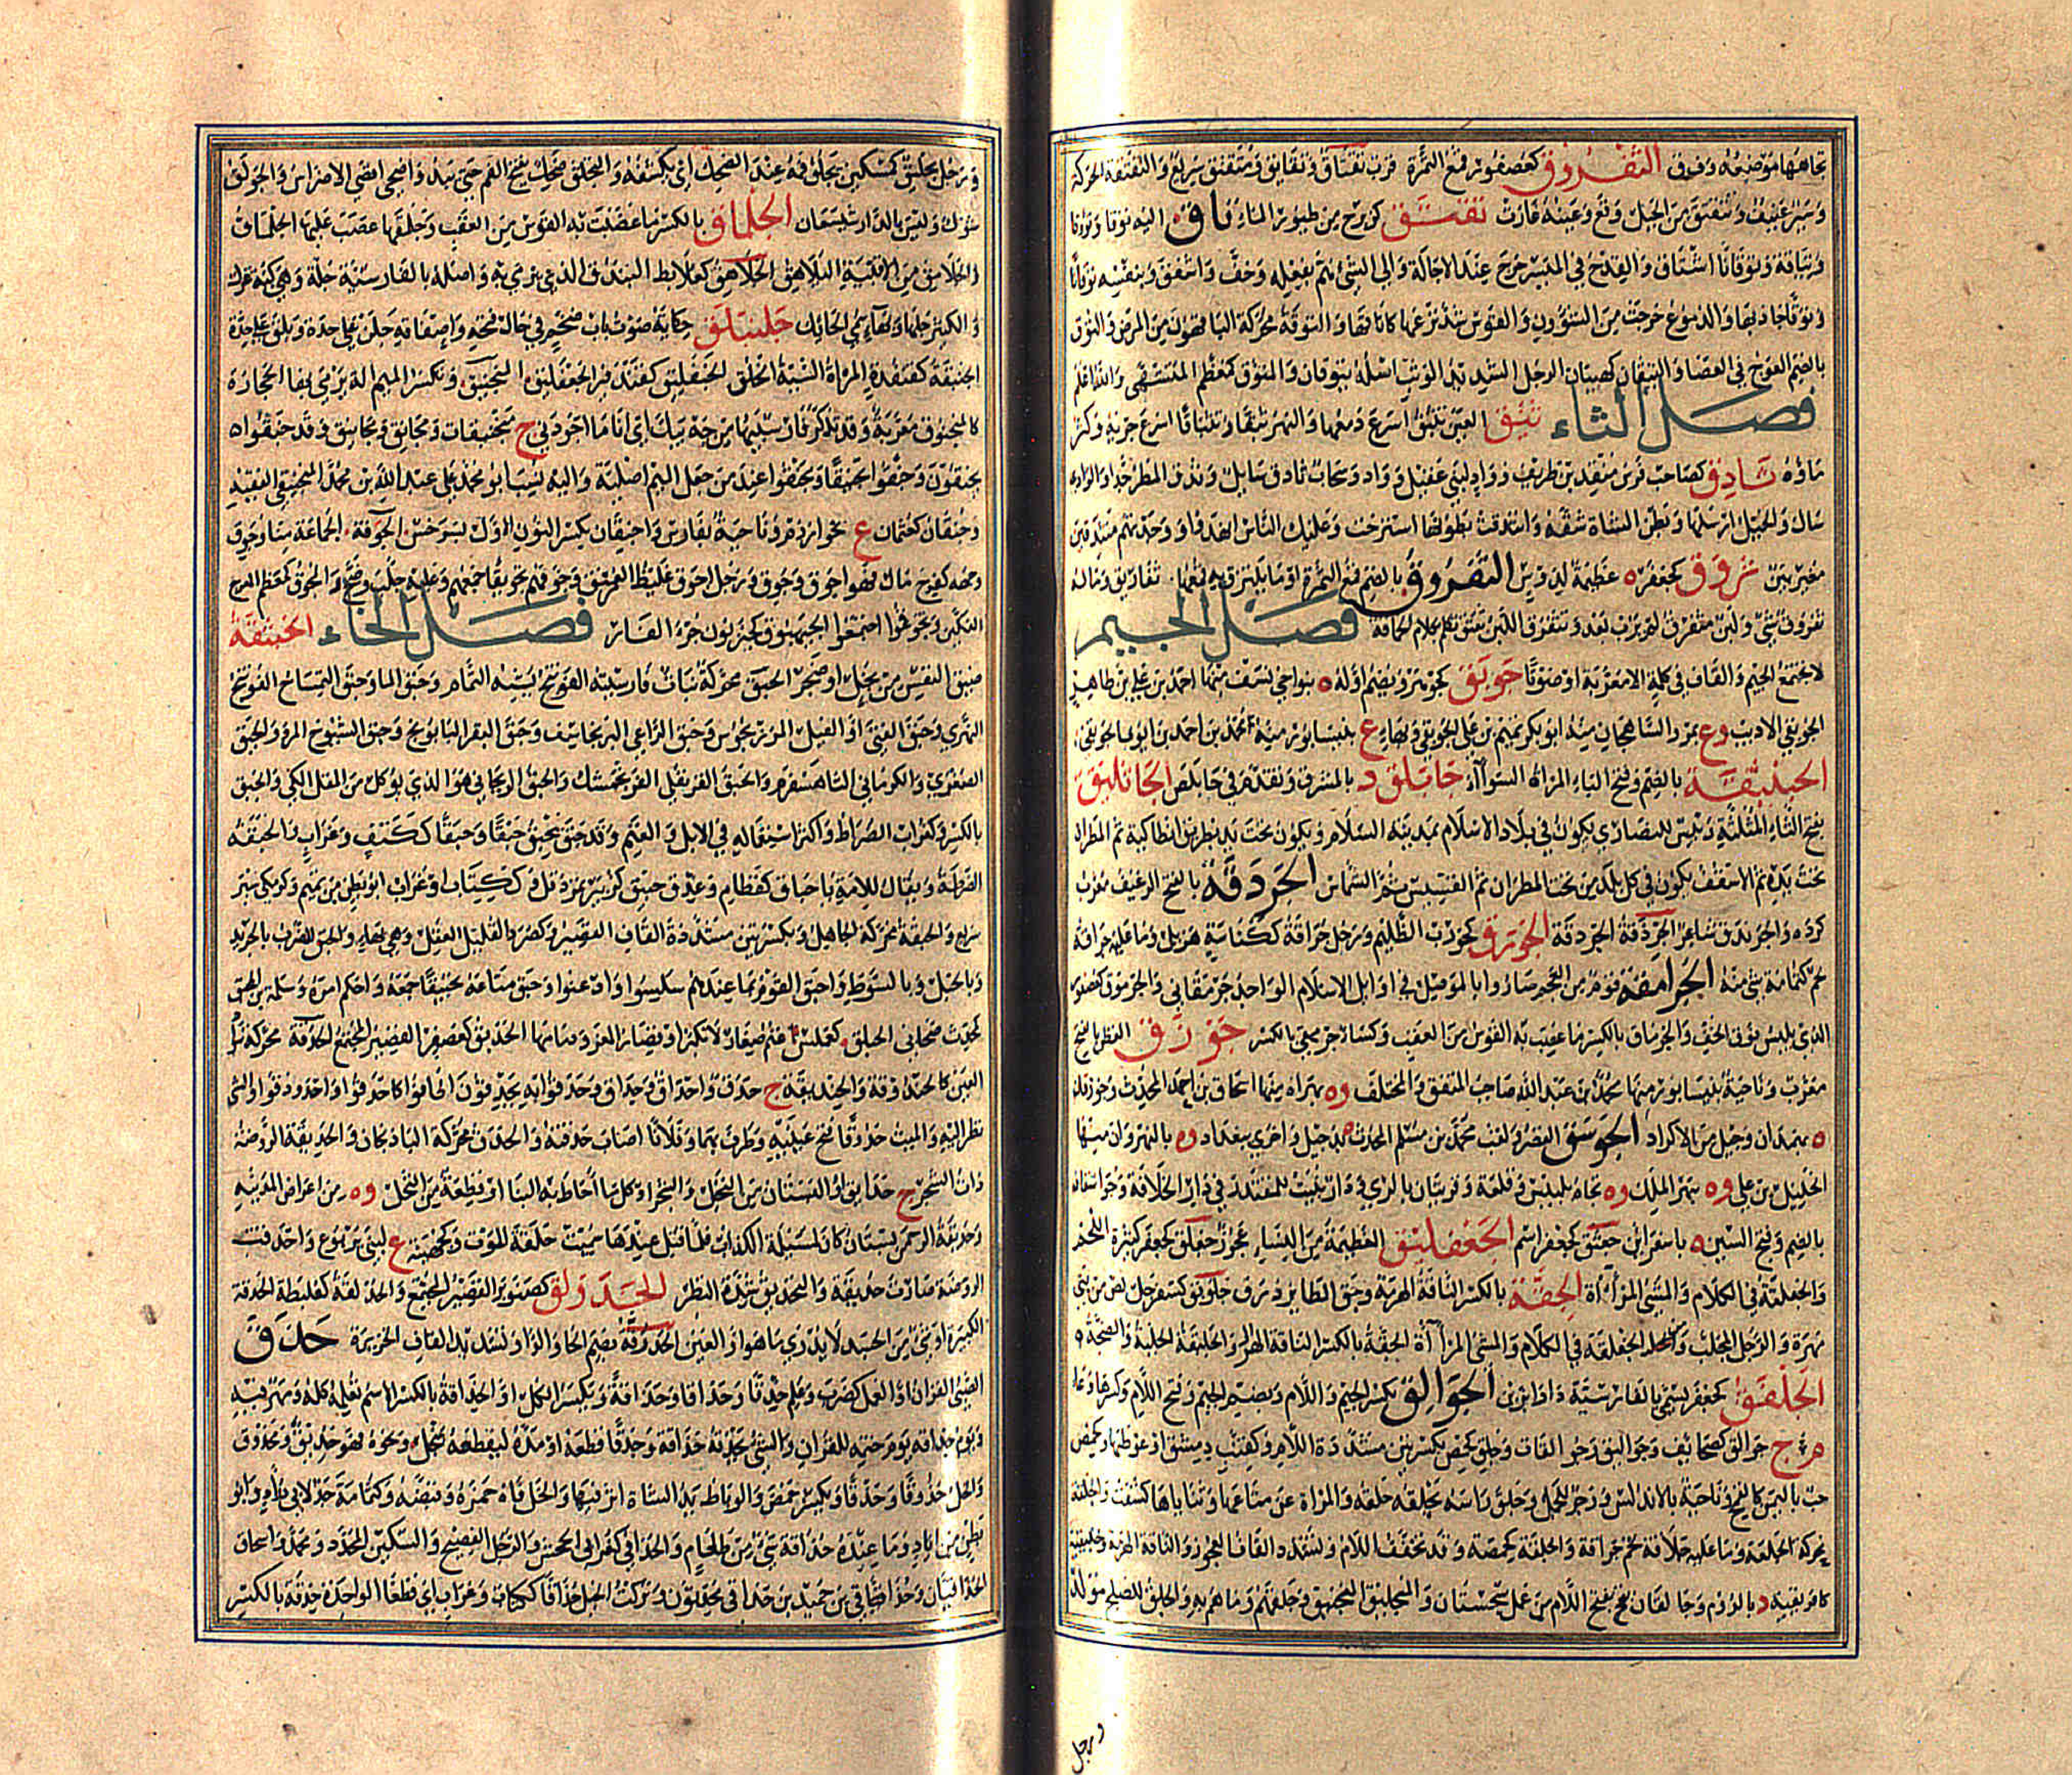 تجاهها موضعه وفوق التفروق كعصفور قمع التمرة قرب تقتاق وتقاتق ومتقتق سريع والتقتقة الحركة
وسير عنيف وتتقتق من الجبل وقع وعينه غارت تقتق من طيور الماء تاق اليه توقا وتؤوقا
وتياقة وتوقانا اشتاق والقدح في الميسر خرج عند الاجالة والى الشئ هم بفعله وخف واشفق وبنفسه توقانا
والدموع خرجت من الشؤون والقوس شد نزعها والتوقة محركة من المرض والتوق
بالضم العوج في العصا والتيقان كهيبان الرجل الشديد الوثب اصله تيوقان والمتوق كمعظم المتشهى والله اعلم
فصل الثاء ثبق العين تثبق اسرع دمعها والنهر ثبقا وتثباقا اسرع جريه وكثر
ماؤه ثادق كصاحب فرس منقذ بن طريف وواد لبني عقيل وواد وسحاب ثادق سايل وثدق المطر جد والوادي
سال والخيل ارسلها وبطن الشاة شقه وانثدقت بطونها استرخت وعليك الناس انهدفوا ووجدتهم منثدقين
مغيرين ثروق كجعفر ه عظيمة لدوس الثفروق بالضم قمع التمرة او ما يلتزق به قمعها ثفاريق وماله
ثفروق شئ ولبن مثفرق لم يرب بعد ثقثق تكلم بكلام الحماقة فصل الجيم
لا تجتمع الجيم والقاف في كلمة الا معربة او صوتا جوبق كجوهر ويضم اوله ه بنواحي نسف منها احمد بن علي بن طاهر
الجوبقي الاديب وع بمرو الشاهجان منه ابو بكر تميم بن علي الجوبقي وبهاء ع بنيسابور منه محمد بن احمد بن ابو الجوبقي
الجبنثقة بالضم وفتح الباء المراة السوآء جابلق د بالمشرق وتقدم في جابلص الجاثليق
بفتح الثاء المثلثة رئيس للنصارى يكون في بلاد الاسلام بمدينة السلام ويكون تحت يد بطريق انطاكية ثم المطران
تحت يده ثم الاسقف يكون في كل بلد من تحت المطران ثم القسيس ثم الشماس الجردقة بالفتح الرغيف معرب
كرده والجرندق شاعر الجرذقة الجردقة الجورق كجورب الظليم ورجل جراقة ككناسة هزيل وما عليه جراقة
لحم كثمامة شئ منه الجرامقة قوم من العجم صاروا بالموصل في اوايل الاسلام الواحد جرمقاني والجرموق كعصفور
الذي يلبس فوق الخف والجرماق بالكسر ما عصب به القوس من العقب وكساء جرمقي بالكسر جوزق القطن بالفتح
معرب وناحية بنيسابور منها محمد بن عبد الله صاحب المتفق والمختلف وه بهراه منها اسحاق بن احمد المحدث وجوزقان
ه بهمدان وجيل من الاكراد الجوسق القصر ولقب محمد بن مسلم المحدث ه بدجيل واخرى ببغداد وه بالنهروان منها
الخليل بن علي وه بنهر الملك وه تجاه بلبيس وقلعة وقريتان بالري ودار بنيت للمقتدر في دار الخلافة
بالضم وفتح السين ه باسفراين جعثق كجعفر اسم الجعفليق العظيمة من النساء عجوز جعلق كجعفر كثيرة اللحم
والمشي المرأة الجقة بالكسر الناقة الهرمة وجق الطاير ذرق جلوبق كسفرجل لص من بني
والرجل المجلب الجفلقة في الكلام والمشي المرآة الجقة بالكسر الناقة الهرمة
الجلفق كجعفر يسمى بالفارسية دارابزين الجوالق بكسر الجيم واللام وبضم الجيم وفتح اللام وكسرها وعاء
م ج جوالق كصحايف وجواليق وجوالقات وجلق كحمص بكسرتين مشددة اللام وكقنب دمشق او غوطتها
وناحية بالاندلس وزجر للجمل وجلق راسه يجلقه حلقه والمراة عن متاعها وثناياها كشفت والجلقة
بحركة الجلعة وما عليه جلاقة لحم جراقة والجلقة كحمصة وقد تخفف اللام وتشدد القاف العجوز والناقة الهرمة وجليقية
كافريقية د بالروم وجالقان بفتح اللام من عمل سجستان والمجليق المنجنيق وجلقهم رماهم به
ورجل
ورجل يجليق كمسكين يجلق فه عند الضحك اي يكشفه والتجلق ضحك بفتح الفم حتى يبدو اقصى الاضراس والجولق
شوك وليس بالدارشيشعان الجلماق بالكسر ما عصبت به القوس من العقب وجلمقها عصب عليها الجلماق
والجلامق من الاقبية اليلامق الجلاهق كعلابط البندق الذي يرمى به واصله بالفارسية جلة وهي كبة غزل
والكثير جلها وبها سمي الحائك جلنبلق حكاية صوت باب ضخم في حالة فتحه واصفاقه جلن على حدة وبلق على حدة
الجنبقة كقنفذة المراة السيئة الخلق الجنفليق كقندفير الجعفليق المنجنيق وتكسر الميم الة ترمى بها الحجارة
كالمنجنوق معربة وقد تذكر فارسيتها من جه نيك اي انا ما اجودني ج منجنيقات ومجانق ومجانيق وقد جنقوا
يجنقون وجنقوا تجنيقا ومجنقوا عند من جعل الميم اصلية واليه نسب ابو محمد علي عبد الله بن محمد المنجنيقي الفقيه
وجنقان كعثمان ع بخوارزم وناحية بفارس واجنيقان بكسر النون الاول بسرخس الجوقة الجماعة منا وجوق
وجهه كفرح مال فهو اجوق وجوق ورجل اجوق غليظ العنق وجوقهم تجويقا جمعهم وعليه جلب وضج والمجوق كمعظم المعوج
الفكين وتجوقوا اجتمعوا الجيهبوق كحيزبون خرء الفار فصل الحاء الحبقة
ضيق النفس من بخل او ضجر الحبق محركة نبات فارسيته الفوتنج يشبه النمام وحبق الماء وحبق التمساح الفوتنج
النهري وحبق القنى او الفيل المرزنجوش وحبق الراعي البرنجاسف وحبق البقر البابونج وحبق الشيوخ المرو والحبق
الصعتري والكرماني الشاهسفرم والحبق القرنفلي الفرنجمشك والحبق الريحاني هو الذي يؤكل من المقل المكي والحبق
بالكسر وكغراب الضراط واكثر استعماله في الابل والغنم وقد حبق يحبق حبقا وحبقا ككتف وغراب والحبقة
الضرطة ويقال للامة يا حباق كقطام وعذق حبيق كزبير تمر دقل ككتاب او غراب ابو بطن من تميم وكزمكى سير
سريع والحبقة محركة الجاهل وبكسرتين مشددة القاف القصير وكصرد القليل العقل وهي بهاء والحبق الضرب بالجريد
وبالحبل وبالسوط واحبق القوم بما عندهم سلسوا واذعنوا وحبق متاعه تحبيقا جمعه واحكم امره وسلمة بن المحبق
كمحدث صحابي الحبلق كعملس غنم صغار لا تكبر او قصار المعز ودمامها الحدبق كعصفر القصير المجتمع الحدقة محركة سواد
العين كالحندوقة والحنديقة ج حدق واحداق وحداق وحدقوا به يحدقون اطافوا كاحدقوا واحدودقوا والشئ
نظر اليه والميت حدوقا فتح عينيه وطرف بهما وفلانا اصاب حدقته والحدق محركة الباذنجان والحديقة الروضة
ذات الشجر ج حدايق او البستان من النخل والشجر او كل ما احاط به البناء او قطعة من النخل وه من اعراض المدينة
وحديقة الرحمن بستان كان لمسيلمة الكذاب فلما قتل عندها سميت حديقة الموت وكجهينة ع لبني يربوع واحدقت
الروضة صارت حديقة والتحديق شدة النظر الحدولق كصنوبر القصير المجتمع والحدلقة كعلبطة الحدقة
الكبيرة او شئ من الجسد لا يدرى ما هو او العين الحدرقة بضم الحاء والراء وتشديد القاف الخزيرة حذق
الصبي القرآن او العمل كضرب وعلم حذقا وحذاقا وحذاقة ويكسر الكل او الحذاقة بالكسر الاسم تعلمه كله ومهر فيه
ويوم حذاقه يوم ختمه للقران والشئ يحذقه حذاقة وحذقا قطعه او مده ليقطعه بمنجل ونحوه فهو حذيق ومحذوق
والخل حذوقا وحذقا ويكسر حمض والرباط يد الشاة اثر فيها والخل فاه حمزه وقبضه وكثمامة جد لابي دؤاد وابو
بطن من اياد وما عنده حذاقة شئ من طعام والحذاقي كغرابي الجحش والرجل الفصيح والسكين المحدد ومحمد واسحاق
الحذاقيان وحذاقي بن حميد بن حذاقي محدثون وتركت الحبل حذاقا ككتاب وغراب اي قطعا الواحدة حذقة بالكسر